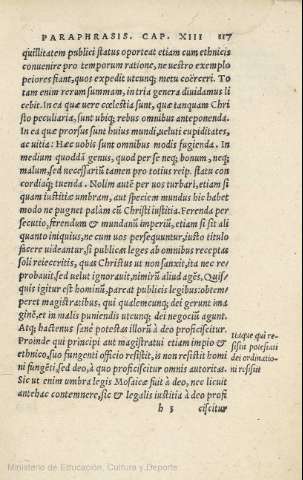 PARAPHRASIS. CAP. XIII 117
quillitatem publici status oporteat etiam cum ethnicis
convenire pro temporum ratione, ne vestro exemplo
peiores fiant, quos expedit utcunq; metu coërceri. To
tam enim rerum summam, in tria genera dividamus li
cebit. In ea quæ vere cœlestia sunt, quæ tanquam Chri
sto peculiaria, sunt ubiq; rebus omnibus anteponenda.
In ea quæ prorsus sunt huius mundi, veluti cupiditates,
ac vitia: Hæc vobis sunt omnibus modis fugienda. In
medium quoddã genus, quod per se neq; bonum, neq;
malum, sed necessariũ tamen pro totius reip. statu con
cordiaq; tuenda. Nolim autẽ per vos turbari, etiam si
quam iustitiæ umbram, aut speciem mundus hic habet
modo ne pugnet palàm cũ Christi iustitia. Ferenda per
secutio, ferendum & mundanũ imperiũ, etiam si sit ali
quanto iniquius, ne cum vos persequuntur, iusto titulo
facere videantur, si publicas leges ab omnibus receptas
soli reieceritis, quas Christus ut non sanxit, ita nec re-
probavit, sed velut ignoravit, nimirũ aliud agẽs. Quis=
quis igitur est hominũ, pareat publicis legibus: obtem/
peret magistratibus, qui qualemcunq; dei gerunt ima
ginẽ, et in malis puniendis utcunq; dei negociũ agunt.
Atq; hactenus sanè potestas illorũ à deo proficiscitur.
Proinde qui principi aut magistratui etiam impio &
ethnico, suo fungenti officio resistit, is non resistit homi
ni fungẽti, sed deo, à quo proficiscitur omnis autoritas.
Sic ut enim umbra legis Mosaicæ fuit à deo, nec licuit
antehac contemnere, sic & legalis iustitia à deo profi
Itaque qui re-
sistit potestati
dei ordinatio-
ni resistit
h 3 ciscitur
Ministerio de Educación, Cultura y Deporte